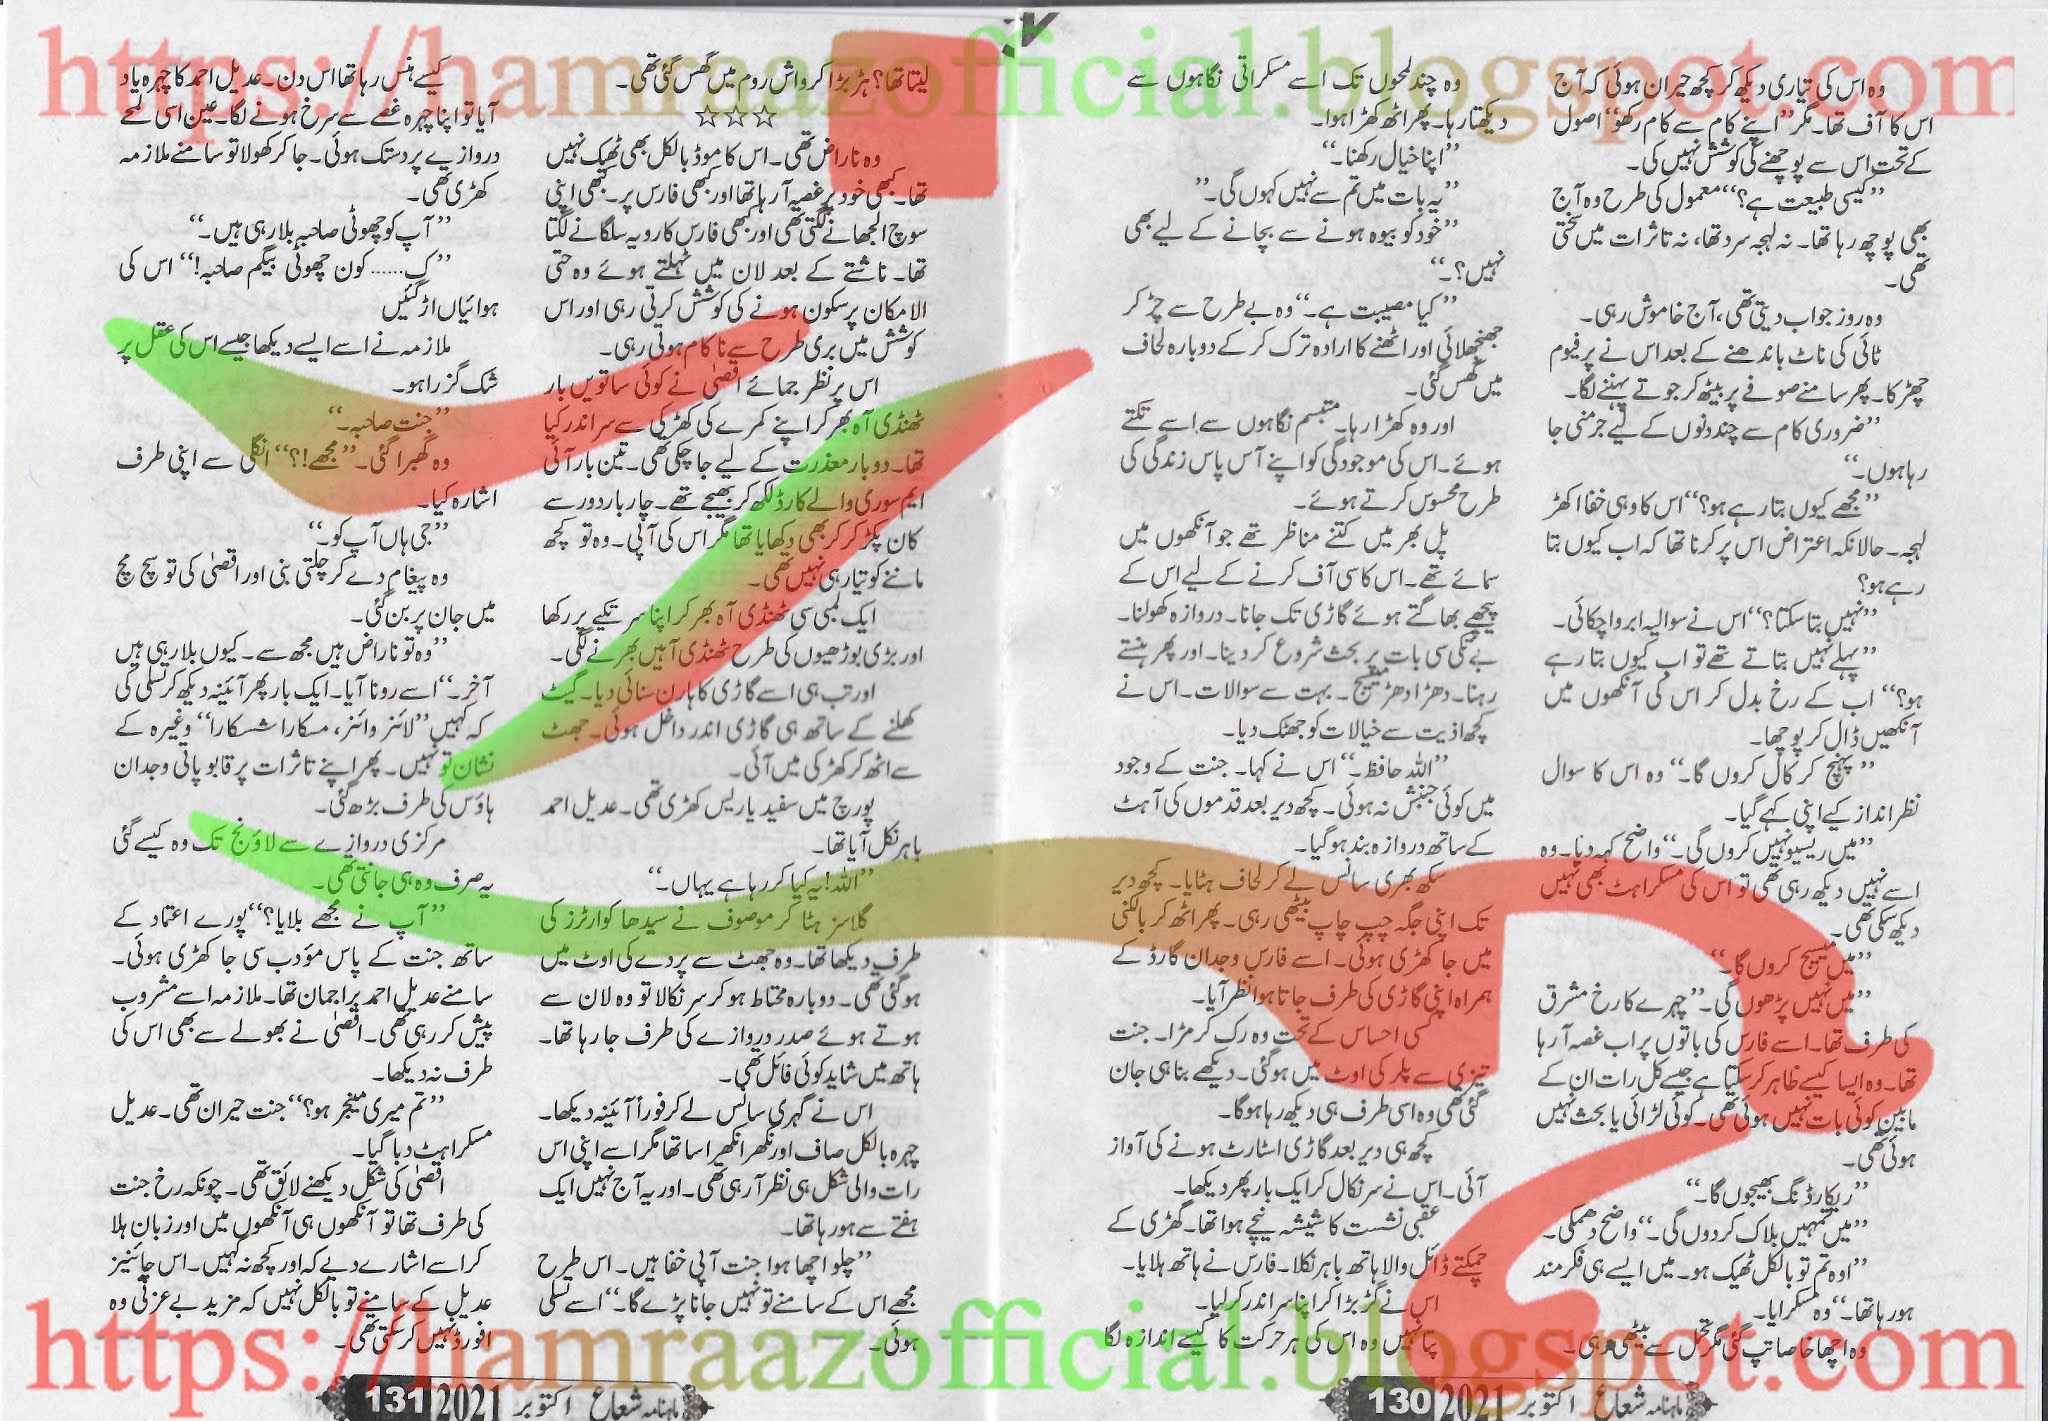 https://hamraazofficial.blogspot.com
وہ اس کی تیاری دیکھ کر کچھ حیران ہوئی کہ آج
اس کا آف تھا۔ مگر ”اپنے کام سے کام رکھو“ اصول
کے تحت اس سے پوچھنے کی کوشش نہیں کی۔
”کیسی طبیعت ہے؟“ معمول کی طرح وہ آج
بھی پوچھ رہا تھا۔ نہ لہجہ سرد تھا، نہ تاثرات میں سختی
تھی۔
وہ روز جواب دیتی تھی، آج خاموش رہی۔
ٹائی کی ناٹ باندھنے کے بعد اس نے پرفیوم
چھڑکا۔ پھر سامنے صوفے پر بیٹھ کر جوتے پہننے لگا۔
”ضروری کام سے چند دنوں کے لیے جرمنی جا
رہا ہوں۔“
”مجھے کیوں بتا رہے ہو؟“ اس کا وہی خفا اکھڑ
لہجہ۔ حالانکہ اعتراض اس پر کرنا تھا کہ اب کیوں بتا
رہے ہو؟
”نہیں بتا سکتا؟“ اس نے سوالیہ ابرو اچکائی۔
”پہلے نہیں بتاتے تھے تو اب کیوں بتا رہے
ہو؟“ اب کے رخ بدل کر اس کی آنکھوں میں
آنکھیں ڈال کر پوچھا۔
”پہنچ کر کال کروں گا۔“ وہ اس کا سوال
نظر انداز کیے اپنی کہے گیا۔
”میں ریسیو نہیں کروں گی۔“ واضح کہہ دیا۔ وہ
اسے نہیں دیکھ رہی تھی تو اس کی مسکراہٹ بھی نہیں
دیکھ سکی تھی۔
”میں میسیج کروں گا۔“
”میں نہیں پڑھوں گی۔“ چہرے کا رخ مشرق
کی طرف تھا۔ اسے فارس کی باتوں پر اب غصہ آ رہا
تھا۔ وہ ایسا کیسے ظاہر کر سکتا ہے جیسے کل رات ان کے
مابین کوئی بات نہیں ہوئی تھی۔ کوئی لڑائی یا بحث نہیں
ہوئی تھی۔
”ریکارڈنگ بھیجوں گا۔“
”میں تمہیں بلاک کر دوں گی۔“ واضح دھمکی۔
”اوہ تم تو بالکل ٹھیک ہو۔ میں ایسے ہی فکر مند
ہو رہا تھا۔“ وہ مسکرایا۔
وہ اچھا خاصا تپ گئی مگر تحمل سے بیٹھی رہی۔
وہ چند لمحوں تک اسے مسکراتی نگاہوں سے
دیکھتا رہا۔ پھر اٹھ کھڑا ہوا۔
”اپنا خیال رکھنا۔“
”یہ بات میں تم سے نہیں کہوں گی۔“
”خود کو بیوہ ہونے سے بچانے کے لیے بھی
نہیں؟۔“
”کیا مصیبت ہے۔“ وہ بے طرح سے چڑ کر
جھنجھلائی اور اٹھنے کا ارادہ ترک کر کے دوبارہ لحاف
میں گھس گئی۔
اور وہ کھڑا رہا۔ متبسم نگاہوں سے اسے تکتے
ہوئے۔ اس کی موجودگی کو اپنے آس پاس زندگی کی
طرح محسوس کرتے ہوئے۔
پل بھر میں کتنے مناظر تھے جو آنکھوں میں
سمائے تھے۔ اس کا سی آف کرنے کے لیے اس کے
پیچھے بھاگتے ہوئے گاڑی تک جانا۔ دروازہ کھولنا۔
بے تکی سی بات پر بحث شروع کر دینا۔ اور پھر ہنستے
رہنا۔ دھڑا دھڑ میسیج۔ بہت سے سوالات۔ اس نے
کچھ اذیت سے خیالات کو جھٹک دیا۔
”اللہ حافظ۔“ اس نے کہا۔ جنت کے وجود
میں کوئی جنبش نہ ہوئی۔ کچھ دیر بعد قدموں کی آہٹ
کے ساتھ دروازہ بند ہو گیا۔
سکھ بھری سانس لے کر لحاف ہٹایا۔ کچھ دیر
تک اپنی جگہ چپ چاپ بیٹھی رہی۔ پھر اٹھ کر بالکنی
میں جا کھڑی ہوئی۔ اسے فارس وجدان گارڈ کے
ہمراہ اپنی گاڑی کی طرف جاتا ہوا نظر آیا۔
کسی احساس کے تحت وہ رک کر مڑا۔ جنت
تیزی سے پلر کی اوٹ میں ہو گئی۔ دیکھے بنا ہی جان
گئی تھی وہ اسی طرف ہی دیکھ رہا ہو گا۔
کچھ ہی دیر بعد گاڑی اسٹارٹ ہونے کی آواز
آئی۔ اس نے سر نکال کر ایک بار پھر دیکھا۔
عقبی نشست کا شیشہ نیچے ہوا تھا۔ گھڑی کے
چمکتے ڈائل والا ہاتھ باہر نکلا۔ فارس نے ہاتھ ہلایا۔
اس نے گڑبڑا کر اپنا سر اندر کر لیا۔
پتا نہیں وہ اس کی ہر حرکت کا کیسے اندازہ لگا
ماہنامہ شعاع اکتوبر 2021 130
لیتا تھا؟ ہڑبڑا کر واش روم میں گھس گئی تھی۔
☆☆☆
وہ ناراض تھی۔ اس کا موڈ بالکل بھی ٹھیک نہیں
تھا۔ کبھی خود پر غصہ آ رہا تھا اور کبھی فارس پر۔ کبھی اپنی
سوچ الجھانے لگتی تھی اور کبھی فارس کا رویہ سلگانے لگتا
تھا۔ ناشتے کے بعد لان میں ٹہلتے ہوئے وہ حتی
الامکان پر سکون ہونے کی کوشش کرتی رہی اور اس
کوشش میں بری طرح سے ناکام ہوتی رہی۔
اس پر نظر جمائے اقصیٰ نے کوئی ساتویں بار
ٹھنڈی آہ بھر کر اپنے کمرے کی کھڑکی سے سر اندر کیا
تھا۔ دو بار معذرت کے لیے جا چکی تھی۔ تین بار آئی
ایم سوری والے کارڈ لکھ کر بھیجے تھے۔ چار بار دور سے
کان پکڑ کر کر بھی دکھایا تھا مگر اس کی آپی۔ وہ تو کچھ
ماننے کو تیار ہی نہیں تھی۔
ایک لمبی سی ٹھنڈی آہ بھر کر اپنا سر تکیے پر رکھا
اور بڑی بوڑھیوں کی طرح ٹھنڈی آہیں بھرنے لگی۔
اور تب ہی اسے گاڑی کا ہارن سنائی دیا۔ گیٹ
کھلنے کے ساتھ ہی گاڑی اندر داخل ہوئی۔ جھٹ
سے اٹھ کر کھڑکی میں آئی۔
پورچ میں سفید یارِس کھڑی تھی۔ عدیل احمد
باہر نکل آیا تھا۔
”اللہ! یہ کیا کر رہا ہے یہاں۔“
گلاسز ہٹا کر موصوف نے سیدھا کوارٹرز کی
طرف دیکھا تھا۔ وہ جھٹ سے پردے کی اوٹ میں
ہو گئی تھی۔ دوبارہ محتاط ہو کر سر نکالا تو وہ لان سے
ہوتے ہوئے صدر دروازے کی طرف جا رہا تھا۔
ہاتھ میں شاید کوئی فائل تھی۔
اس نے گہری سانس لے کر فوراً آئینہ دیکھا۔
چہرہ بالکل صاف اور نکھرا نکھرا سا تھا مگر اسے اپنی اس
رات والی شکل ہی نظر آ رہی تھی۔ اور یہ آج نہیں ایک
ہفتے سے ہو رہا تھا۔
”چلو اچھا ہوا جنت آپی خفا ہیں۔ اس طرح
مجھے اس کے سامنے تو نہیں جانا پڑے گا۔“ اسے تسلی
ہوئی۔
کیسے ہنس رہا تھا اس دن۔ عدیل احمد کا چہرہ یاد
آیا تو اپنا چہرہ غصے سے سرخ ہونے لگا۔ عین اسی لمحے
دروازے پر دستک ہوئی۔ جا کر کھولا تو سامنے ملازمہ
کھڑی تھی۔
”آپ کو چھوٹی صاحبہ بلا رہی ہیں۔“
”ک...... کون چھوٹی بیگم صاحبہ!“ اس کی
ہوائیاں اڑ گئیں
ملازمہ نے اسے ایسے دیکھا جیسے اس کی عقل پر
شک گزرا ہو۔
”جنت صاحبہ۔“
وہ گھبرا گئی۔ ”مجھے!؟“ انگلی سے اپنی طرف
اشارہ کیا۔
”جی ہاں آپ کو۔“
وہ پیغام دے کر چلتی بنی اور اقصیٰ کی تو سچ مچ
میں جان پر بن گئی۔
”وہ تو ناراض ہیں مجھ سے۔ کیوں بلا رہی ہیں
آخر۔“ اسے رونا آیا۔ ایک بار پھر آئینہ دیکھ کر تسلی کی
کہ کہیں ”لائنز وائنز، مسکارا شسکارا“ وغیرہ کے
نشان تو نہیں۔ پھر اپنے تاثرات پر قابو پاتی وجدان
ہاؤس کی طرف بڑھ گئی۔
مرکزی دروازے سے لاؤنج تک وہ کیسے گئی
یہ صرف وہ ہی جانتی تھی۔
”آپ نے مجھے بلایا؟“ پورے اعتماد کے
ساتھ جنت کے پاس مؤدب سی جا کھڑی ہوئی۔
سامنے عدیل احمد براجمان تھا۔ ملازمہ اسے مشروب
پیش کر رہی تھی۔ اقصیٰ نے بھولے سے بھی اس کی
طرف نہ دیکھا۔
”تم میری مینجر ہو؟“ جنت حیران تھی۔ عدیل
مسکراہٹ دبا گیا۔
اقصیٰ کی شکل دیکھنے لائق تھی۔ چونکہ رخ جنت
کی طرف تھا تو آنکھوں ہی آنکھوں میں اور زبان ہلا
کر اسے اشارے دیے کہ اور کچھ نہ کہیں۔ اس چائنیز
عدیل کے سامنے تو بالکل نہیں کہ مزید بے عزتی وہ
افورڈ نہیں کر سکتی تھی۔
ماہنامہ شعاع اکتوبر 2021 131
https://hamraazofficial.blogspot.com